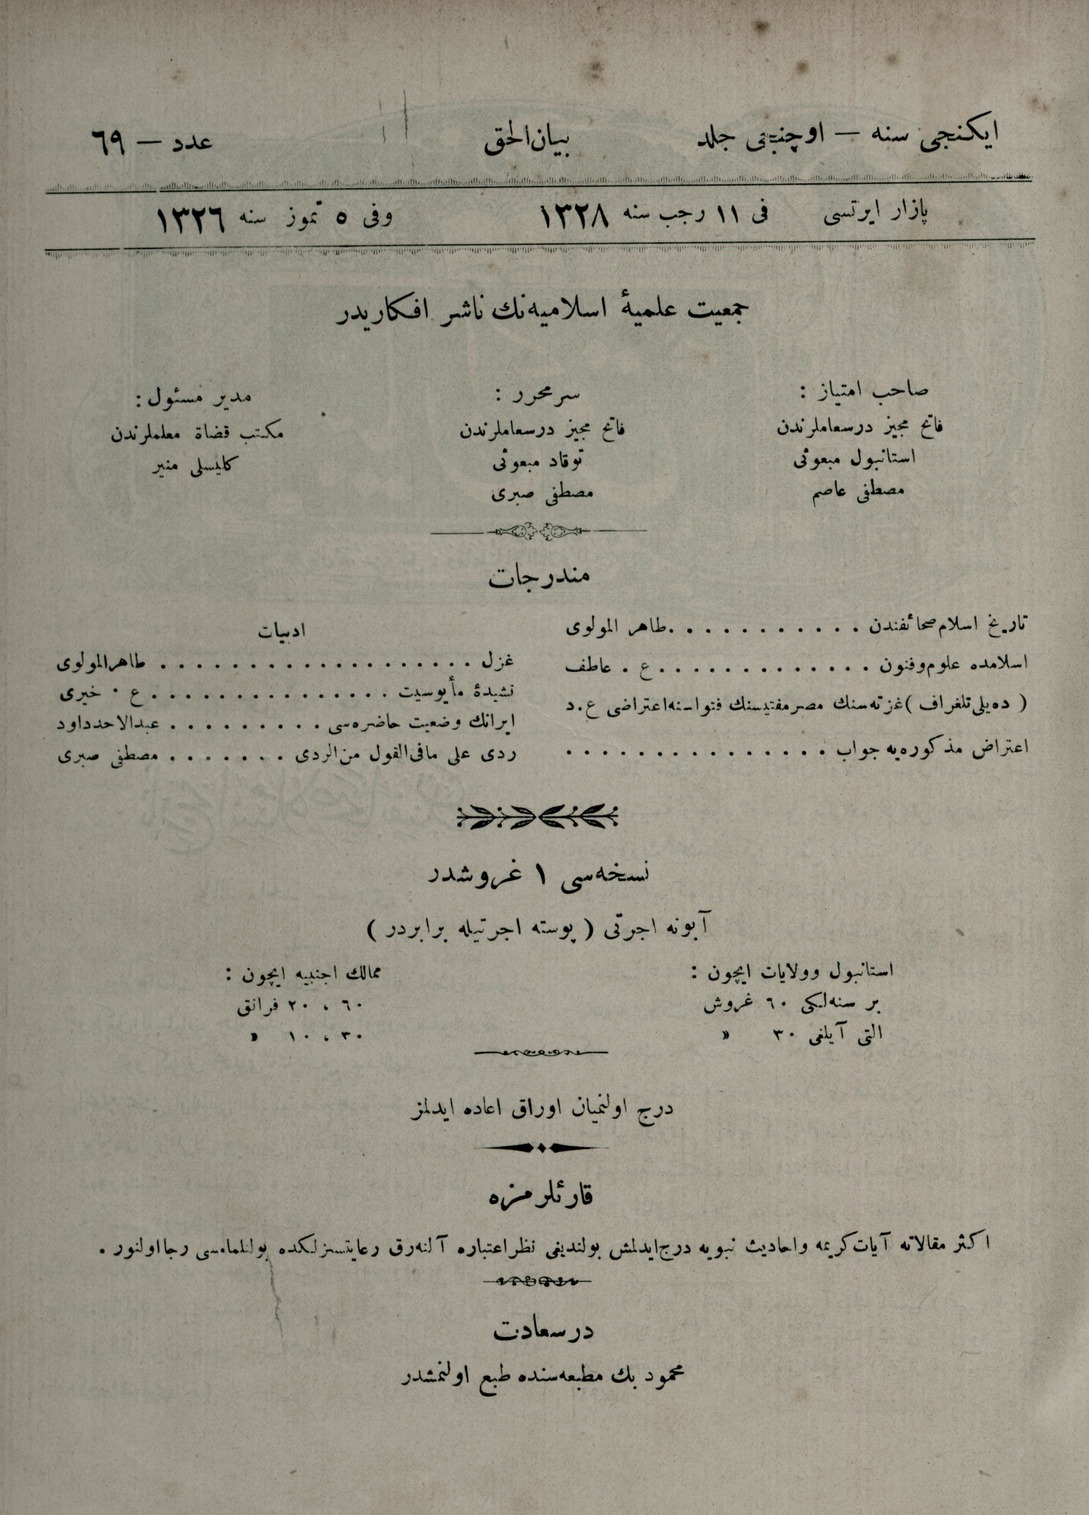 ایكنجی سنه — اوچنجی جلد
بیان‌الحق
عدد — ٦٩
پازار ایرتسی
فی ١١ رجب سنه ١٣٢٨
وفی ٥ تموز سنه ١٣٢٦
جمعیت علمیهٔ اسلامیه‌نك ناشر افكاریدر
صاحب امتیاز :
فاتح مجیز درسعاملرندن
استانبول مبعوثی
مصطفی عاصم
سرمحرر :
فاتح مجیز درسعاملرندن
توقاد مبعوثی
مصطفی صبری
مدیر مسئول :
مكتب قضاة معلملرندن
كلیسلی منیر
مندرجات
تاریخ اسلام صحائفندن . . . . . . . . . . . طاهر المولوی
اسلامده علوم وفنون . . . . . . . . . . . . . ع . عاطف
( ده‌یلی تلغراف ) غزته‌سنك مصر مفتیسنك فتواسنه اعتراضی ع . د
اعتراض مذكوره‌یه جواب . . . . . . . . . . . . . . .
ادبیات
غزل . . . . . . . . . . . . . . . . . . . طاهر المولوی
نشیدهٔ مأیوسیت . . . . . . . . . . . . . . . ع . خیری
ایرانك وضعیت حاضره‌سی . . . . . . . . . عبدالاحد داود
ردی علی مافی القول من الردی . . . . . . . مصطفی صبری
نسخه‌سی ١ غروشدر
آبونه اجرتی ( پوسته اجرتیله برابردر )
استانبول وولایات ایچون :
بر سنه‌لكی ٦٠ غروش
التی آیلغی ٣٠ »
ممالك اجنبیه ایچون :
٦٠ ، ٢٠ فرانق
٣٠ ، ١٠ »
درج اولنمیان اوراق اعاده ایدلمز
قارئلرمزه
اكثر مقالاته آیات كریمه واحادیث نبویه درج ایدلمش بولندیغی نظر اعتباره آلنه‌رق رعایتسزلكده بولنلمامسی رجا اولنور .
درسعادت
محمود بك مطبعه‌سنده طبع اولنمشدر